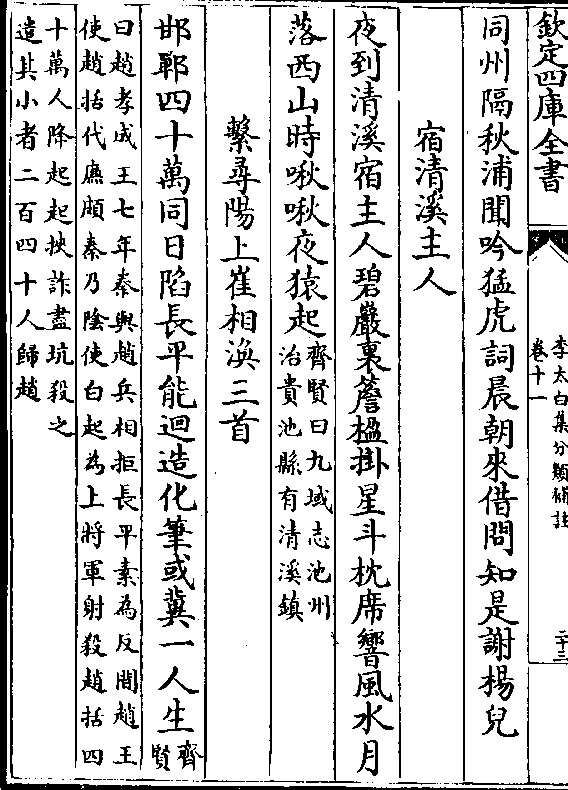 欽定四庫全書
李太白集分類補註
卷十一
二十三
同州隔秋浦聞吟猛虎詞晨朝來借問知是謝楊兒
宿清溪主人
夜到清溪宿主人碧巖裏簷楹掛星斗枕席響風水月
落西山時啾啾夜猿起齊賢曰九域志池州
治貴池縣有清溪鎮
繫尋陽上崔相渙三首
邯鄲四十萬同日陷長平能迴造化筆或冀一人生齊
賢
曰趙孝成王七年秦與趙兵相拒長平秦為反間趙王
使趙括代廉頗秦乃陰使白起為上將軍射殺趙括四
十萬人降起起挾詐盡坑殺之
遣其小者二百四十人歸趙